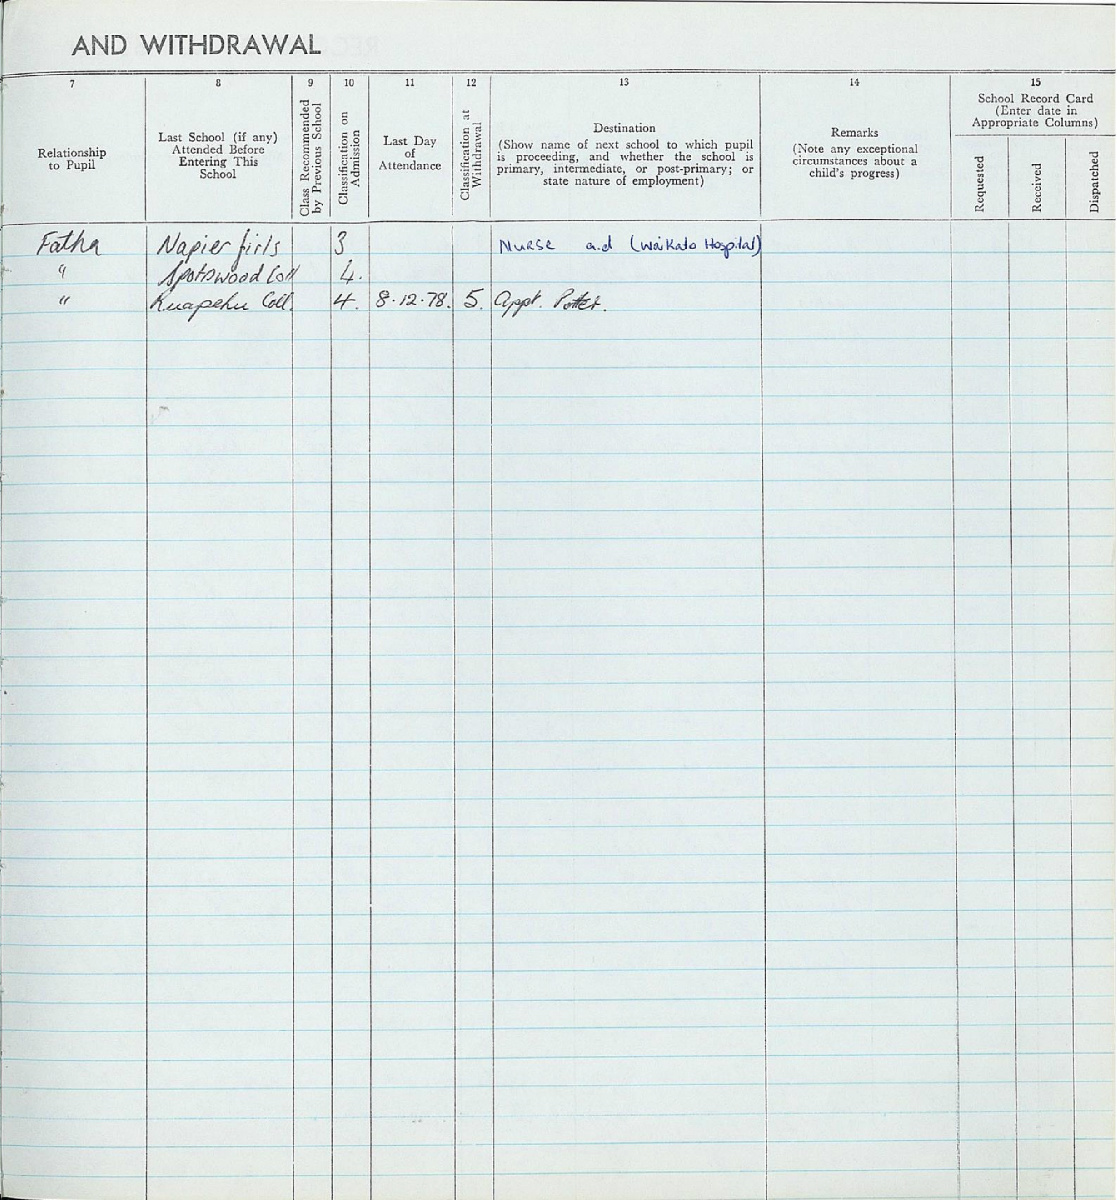 AND WITHDRAWAL
7 8 9 10 11 12 13 14 15
Relationship
to Pupil
Last School (if any)
Attended Before
Entering This
School
Class Recommended
by Previous School
Classification on
Admission
Last Day
of
Attendance
Classification at
Withdrawal
Destination
(Show name of next school to which pupil
is proceeding, and whether the school is
primary, intermediate, or post-primary; or
state nature of employment)
Remarks
(Note any exceptional
circumstances about a
child's progress)
School Record Card
(Enter date in
Appropriate Columns)
Requested
Received
Dispatched
Father Napier Girls 3 Nurse aid (Waikato Hospital)
" Spotswood Coll 4.
" Ruapehu Coll. 4. 8.12.78. 5. Appt. Potter.